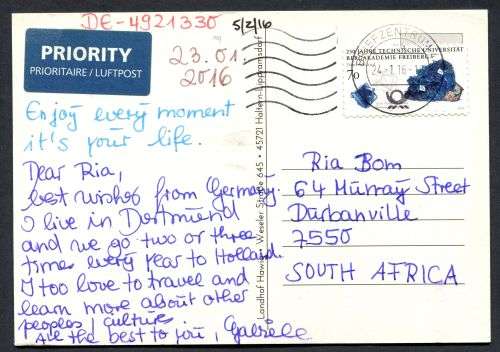 DE-4921330
5/2/16
PRIORITY
PRIORITAIRE / LUFTPOST
23.01.
2016
Enjoy every moment
it's your life.
Dear Ria,
best wishes from Germany.
I live in Dortmund
and we go two or three
times every year to Holland.
I too love to travel and
learn more about other
peoples / culture.
All the best to you, Gabriele
Landhof Hawig • Weseler Straße 645 • 45721 Haltern-Lippramsdorf
BRIEFZENTRUM
24.-1.16
250 JAHRE TECHNISCHE UNIVERSITÄT
BERGAKADEMIE FREIBERG
70
Ria Bom
64 Murray Street
Durbanville
7550
SOUTH AFRICA